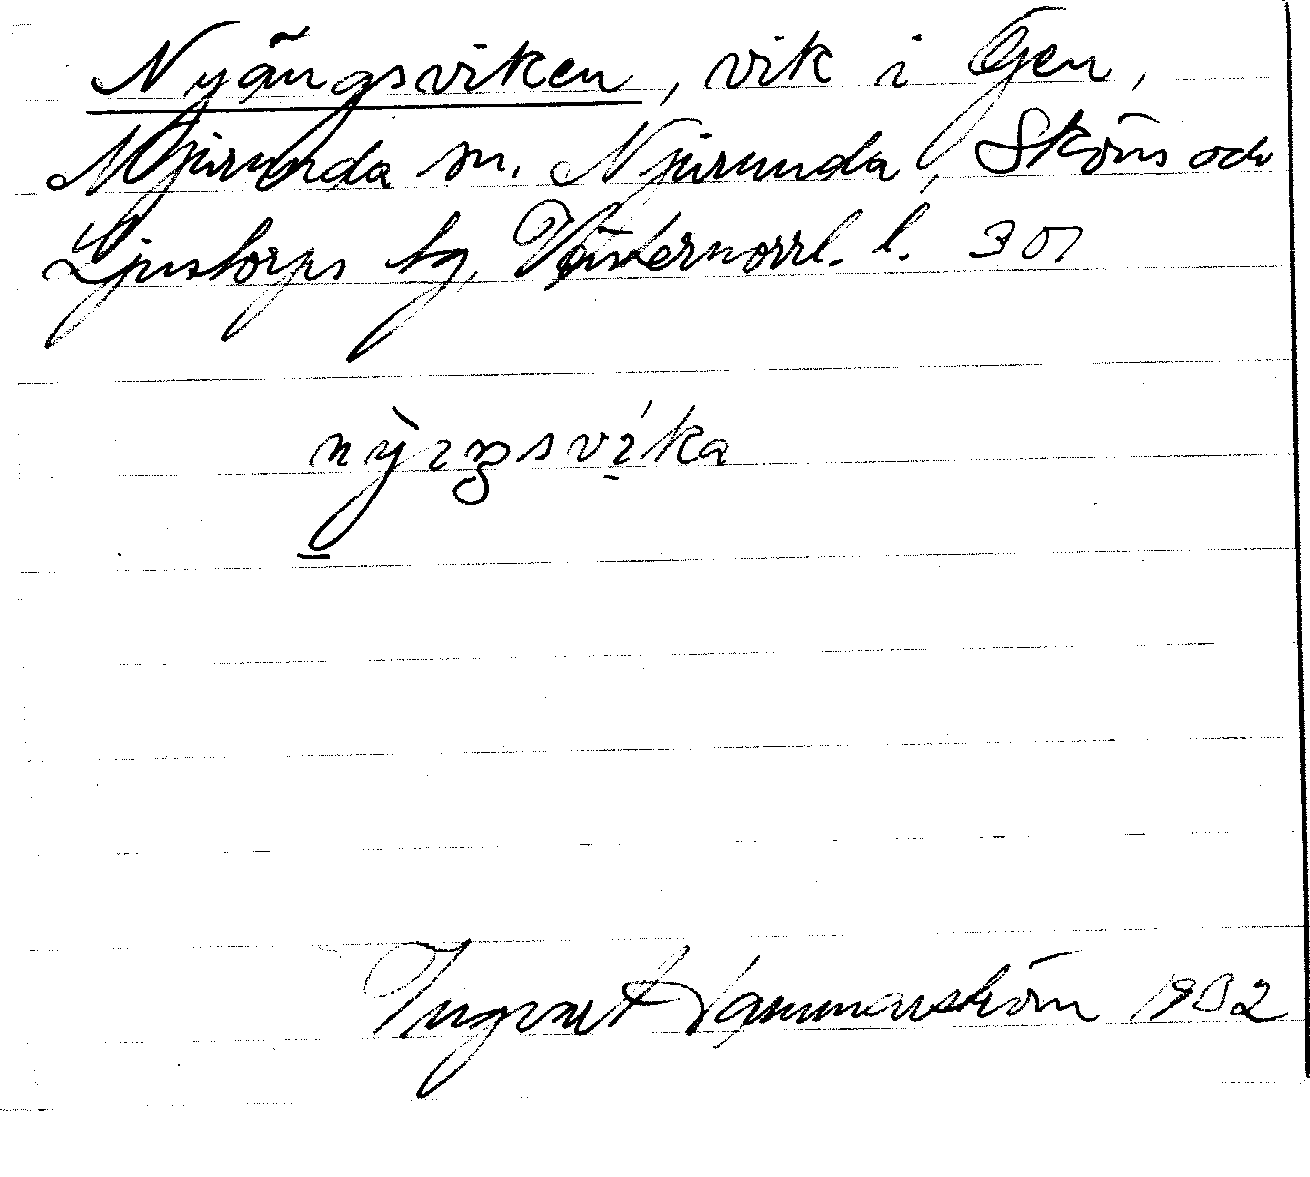 Nyängsviken, vik i Gen,
Njurunda sn. Njurunda, Sköns och
Ljustorps tg Västernorrl. l.
Ingvar Hammarström 1932